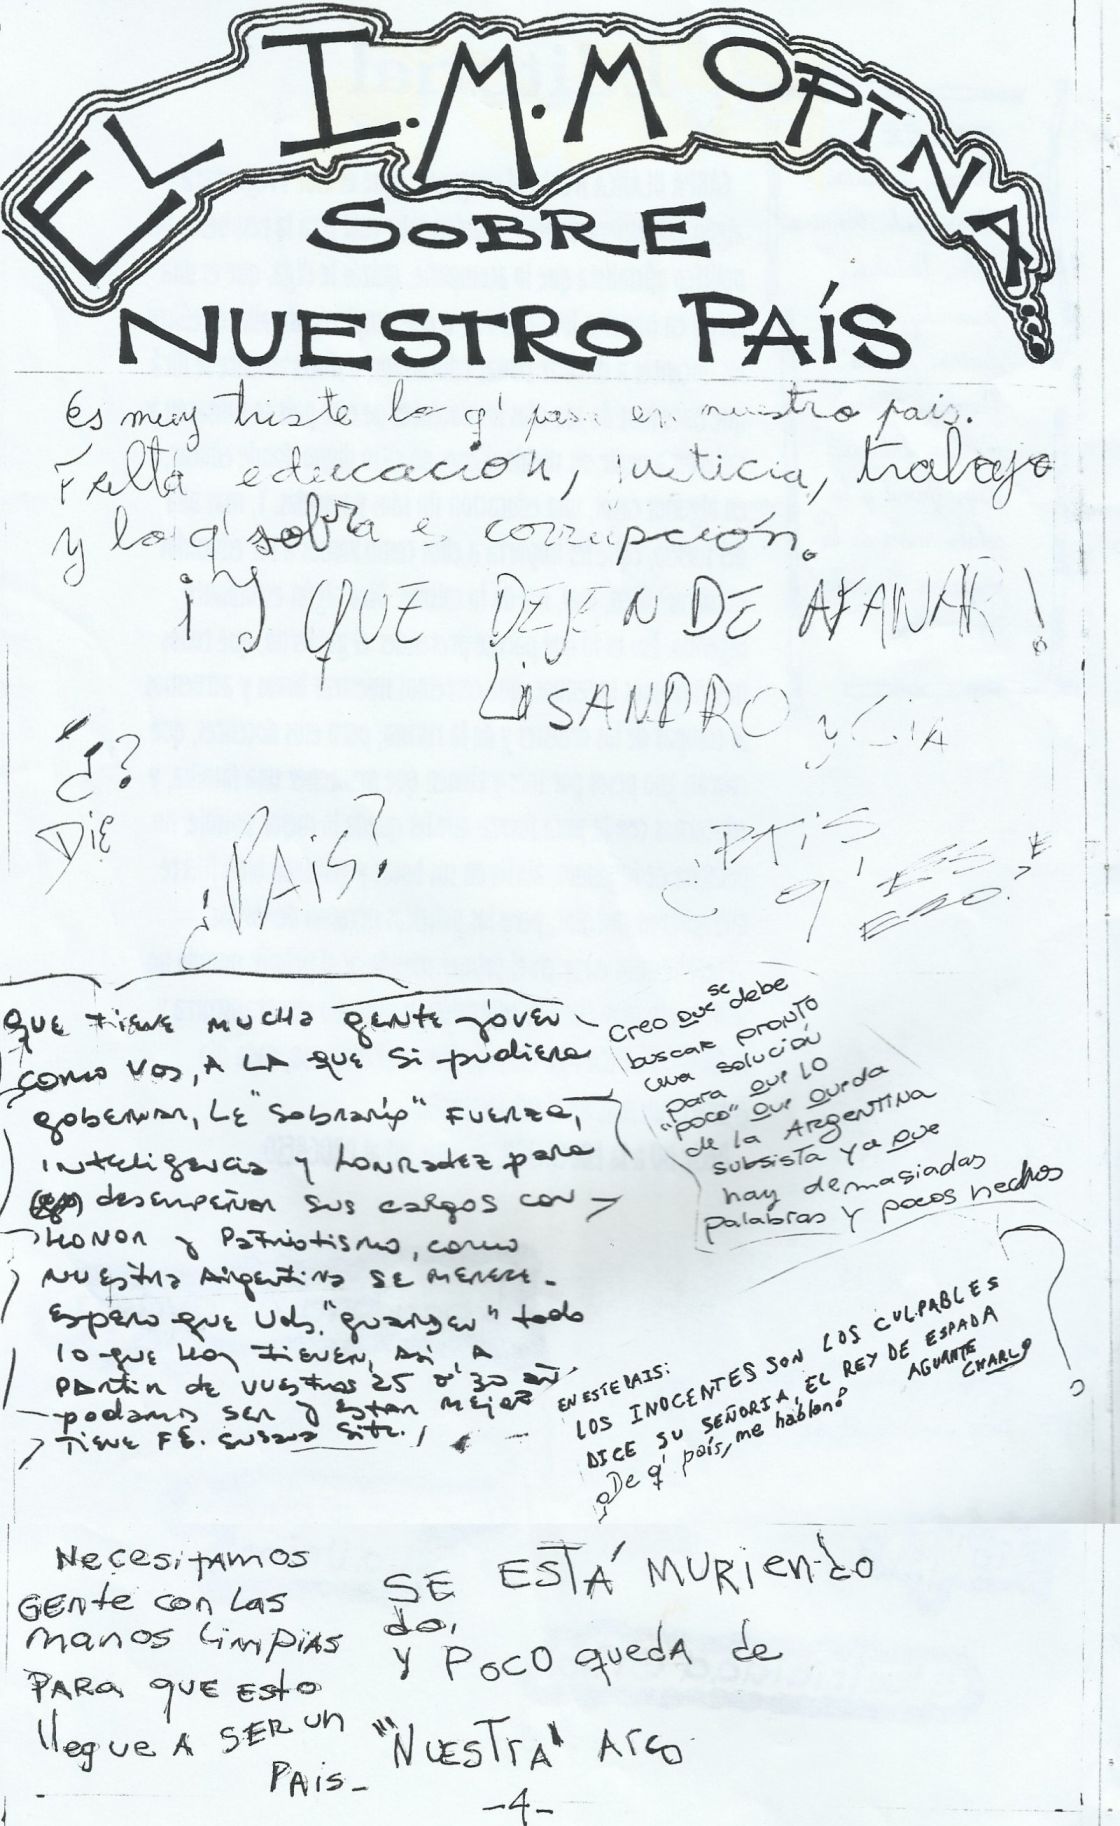 EL I.M.M OPINA...
SOBRE
NUESTRO PAÍS
Es muy triste lo q' pasa en nuestro país.
Falta educación, justicia, trabajo
y lo q' sobra es corrupción.
¡Y QUE DEJEN DE AFANAR!
LISANDRO y CIA
¿?
DIE
¿PAIS?
¿PAIS,
q' ES
ESO?
QUE TIENE MUCHA GENTE joven
como Vos, A LA QUE Si pudiera
gobernar, LE "sobraría" FUERZA,
INteligencia y HONRADEZ para
desempeñar sus cargos con
HONOR y Patriotismo, como
NUEstra Argentina SE MERECE.
Espero que Uds. "guarden" todo
lo que Hoy TIENEN, Así, A
PARtir de VUESTROS 25 o 30 añ
podamos SER y ESTAR MEJOR
TIENE FE. Susana
Creo que se debe
buscar pronto
una solución
para que lo
"poco" que queda
de la Argentina
subsista ya que
hay demasiadas
palabras y pocos hechos
?
EN ESTE PAIS:
LOS INOCENTES SON LOS CULPABLES
DICE SU SEÑORIA, EL REY DE ESPADA
AGUANTE
CHARLY
¿De q' país, me hablan?
Necesitamos
GENte con Las
manos limpias
PARA QUE ESTO
llegue A SER un
PAIS-
SE ESTÁ MURiendo
do,
y POCO queda de
"NUESTRA" Arg.
-4-